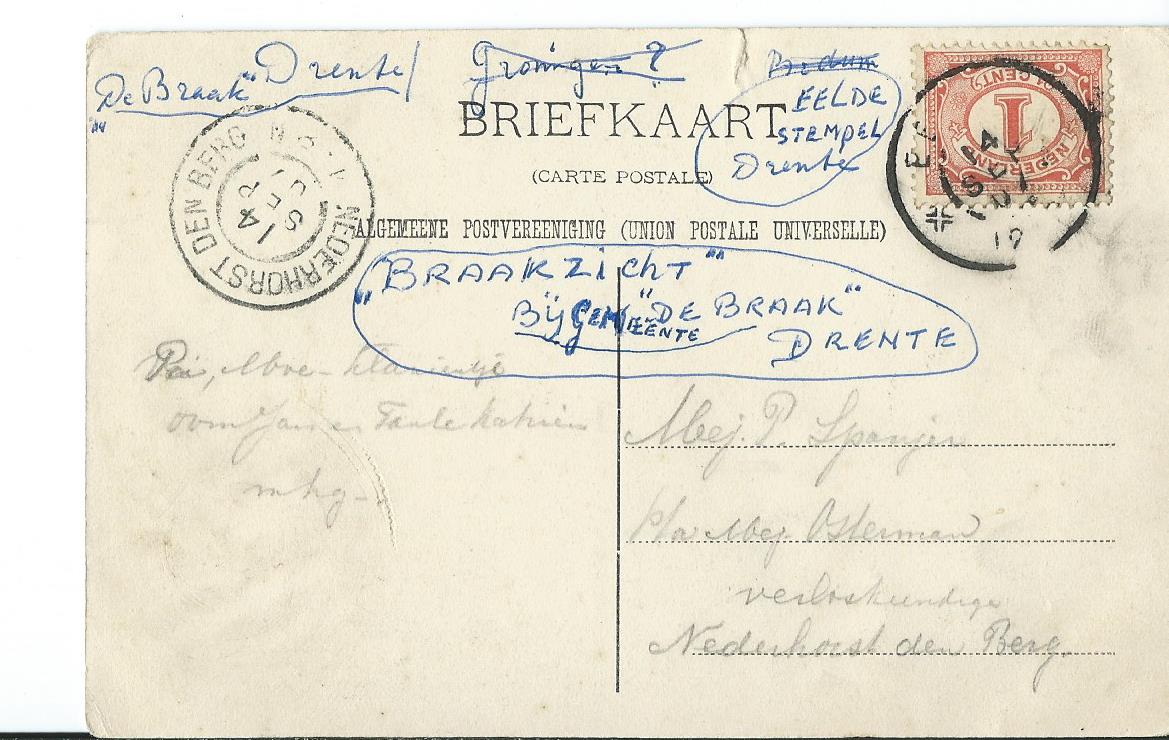 "De Braak" Drente
Groningen?
Bedum
EELDE
STEMPEL
Drente
BRIEFKAART
(CARTE POSTALE)
ALGEMEENE POSTVEREENIGING (UNION POSTALE UNIVERSELLE)
NEDERHORST DEN BERG
14 SEP
1 CENT
1
NEDERLAND
14 SEP
"BRAAKZICHT"
BIJ GEMEENTE "DE BRAAK"
DRENTE
Pa, Moe
oom Jan en Tante Katrien
Mej. P. Spanjer
p/a Mej Osterman
verloskundige
Nederhorst den Berg.